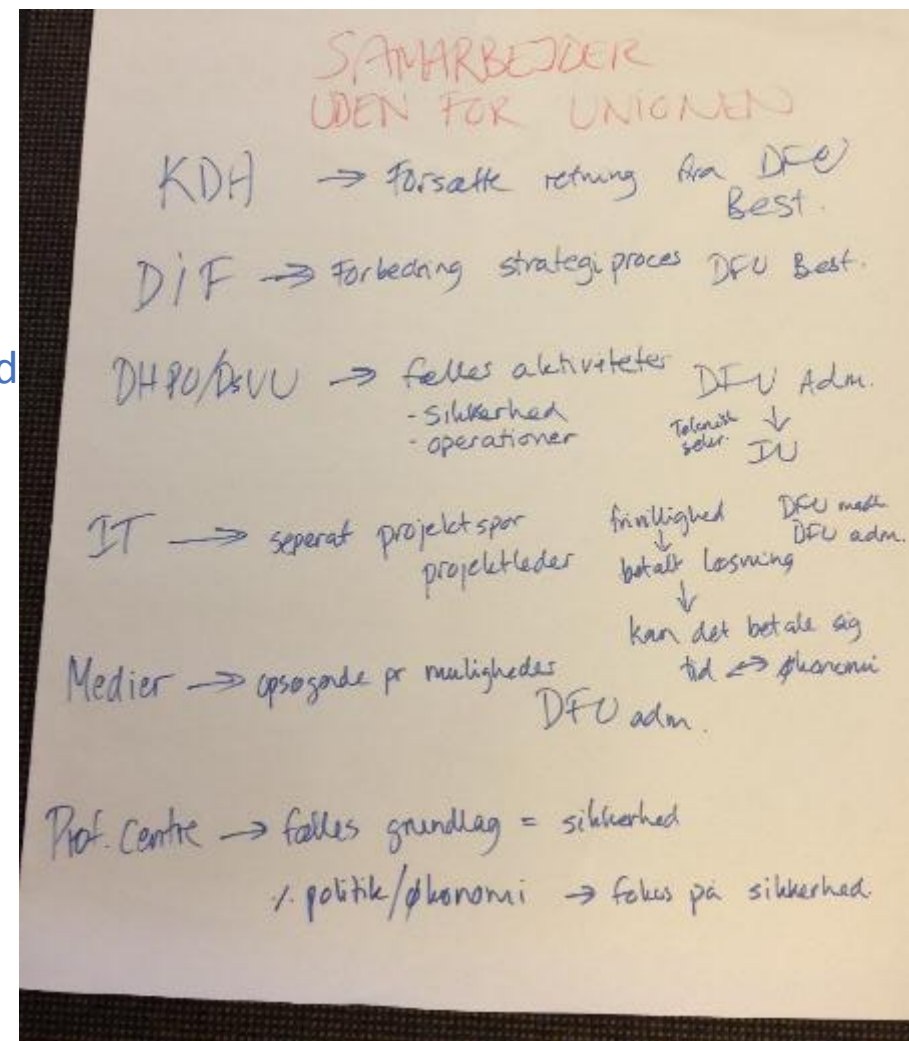 SAMARBEJDER
UDEN FOR UNIONEN
KDH → Forsætte retning fra DFU
Best.
DIF → Forbedring strategiproces DFU Best.
d
DHPU/DSVU → fælles aktiviteter DFU Adm.
- sikkerhed
- operationer
Teknisk
sekr. ↓
IU
IT → seperat projektspor
projektleder
frivillighed
↓
betalt løsning
↓
kan det betale sig
tid ↔ økonomi
DFU
DFU adm.
Medier → opsøgende pr muligheder
DFU adm.
Prof. Centre → fælles grundlag = sikkerhed
÷ politik/økonomi → fokus på sikkerhed.